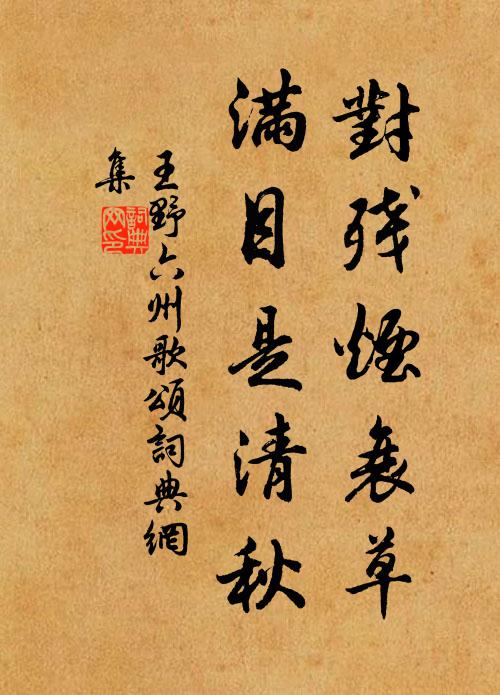 對殘煙衰草
滿目是清秋
王野六州歌頌詞典網
集
詞典網印